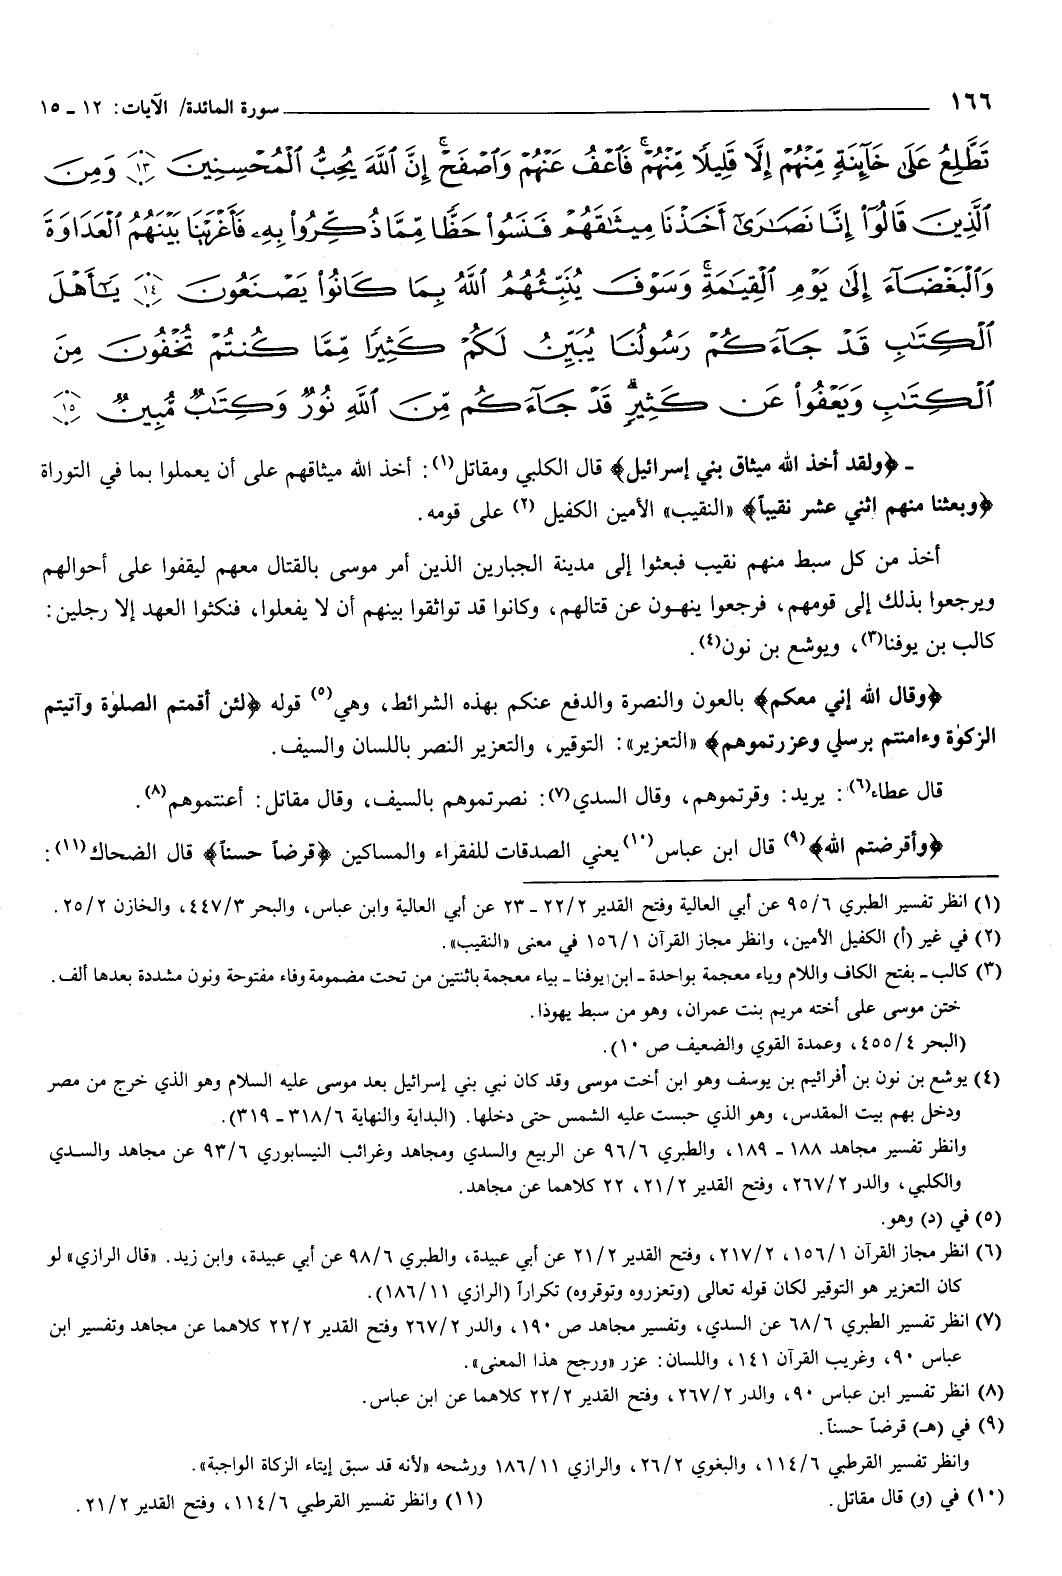 ١٦٦ سورة المائدة/ الآيات: ١٢ ـ ١٥
تَطَّلِعُ عَلَىٰ خَآئِنَةٍ مِّنْهُمْ إِلَّا قَلِيلًا مِّنْهُمْ ۖ فَاعْفُ عَنْهُمْ وَاصْفَحْ ۚ إِنَّ اللَّهَ يُحِبُّ الْمُحْسِنِينَ ﴿١٣﴾ وَمِنَ
الَّذِينَ قَالُوٓا۟ إِنَّا نَصَـٰرَىٰٓ أَخَذْنَا مِيثَـٰقَهُمْ فَنَسُوا۟ حَظًّا مِّمَّا ذُكِّرُوا۟ بِهِۦ فَأَغْرَيْنَا بَيْنَهُمُ الْعَدَاوَةَ
وَالْبَغْضَآءَ إِلَىٰ يَوْمِ الْقِيَـٰمَةِ ۚ وَسَوْفَ يُنَبِّئُهُمُ اللَّهُ بِمَا كَانُوا۟ يَصْنَعُونَ ﴿١٤﴾ يَـٰٓأَهْلَ
الْكِتَـٰبِ قَدْ جَآءَكُمْ رَسُولُنَا يُبَيِّنُ لَكُمْ كَثِيرًا مِّمَّا كُنتُمْ تُخْفُونَ مِنَ
الْكِتَـٰبِ وَيَعْفُوا۟ عَن كَثِيرٍ ۚ قَدْ جَآءَكُم مِّنَ اللَّهِ نُورٌ وَكِتَـٰبٌ مُّبِينٌ ﴿١٥﴾
ـ ﴿ولقد أخذ الله ميثاق بني إسرائيل﴾ قال الكلبي ومقاتل(١): أخذ الله ميثاقهم على أن يعملوا بما في التوراة
﴿وبعثنا منهم اثني عشر نقيباً﴾ «النقيب» الأمين الكفيل (٢) على قومه.
أخذ من كل سبط منهم نقيب فبعثوا إلى مدينة الجبارين الذين أمر موسى بالقتال معهم ليقفوا على أحوالهم
ويرجعوا بذلك إلى قومهم، فرجعوا ينهون عن قتالهم، وكانوا قد تواثقوا بينهم أن لا يفعلوا، فنكثوا العهد إلا رجلين:
كالب بن يوفنا(٣)، ويوشع بن نون(٤).
﴿وقال الله إني معكم﴾ بالعون والنصرة والدفع عنكم بهذه الشرائط، وهي(٥) قوله ﴿لئن أقمتم الصلوٰة وآتيتم
الزكوٰة وءامنتم برسلي وعزرتموهم﴾ «التعزير»: التوقير، والتعزير النصر باللسان والسيف.
قال عطاء(٦): يريد: وقرتموهم، وقال السدي(٧): نصرتموهم بالسيف، وقال مقاتل: أعنتموهم(٨).
﴿وأقرضتم الله﴾(٩) قال ابن عباس(١٠) يعني الصدقات للفقراء والمساكين ﴿قرضاً حسناً﴾ قال الضحاك(١١):
(١) انظر تفسير الطبري ٩٥/٦ عن أبي العالية وفتح القدير ٢٢/٢ ـ ٢٣ عن أبي العالية وابن عباس، والبحر ٤٤٧/٣، والخازن ٢٥/٢.
(٢) في غير (أ) الكفيل الأمين، وانظر مجاز القرآن ١٥٦/١ في معنى «النقيب».
(٣) كالب ـ بفتح الكاف واللام وياء معجمة بواحدة ـ ابن يوفنا ـ بياء معجمة باثنتين من تحت مضمومة وفاء مفتوحة ونون مشددة بعدها ألف.
ختن موسى على أخته مريم بنت عمران، وهو من سبط يهوذا.
(البحر ٤٥٥/٤، وعمدة القوي والضعيف ص ١٠).
(٤) يوشع بن نون بن أفرائيم بن يوسف وهو ابن أخت موسى وقد كان نبي بني إسرائيل بعد موسى عليه السلام وهو الذي خرج من مصر
ودخل بهم بيت المقدس، وهو الذي حبست عليه الشمس حتى دخلها. (البداية والنهاية ٣١٨/٦ ـ ٣١٩).
وانظر تفسير مجاهد ١٨٨ ـ ١٨٩، والطبري ٩٦/٦ عن الربيع والسدي ومجاهد وغرائب النيسابوري ٩٣/٦ عن مجاهد والسدي
والكلبي، والدر ٢٦٧/٢، وفتح القدير ٢١/٢، ٢٢ كلاهما عن مجاهد.
(٥) في (د) وهو.
(٦) انظر مجاز القرآن ١٥٦/١، ٢١٧/٢، وفتح القدير ٢١/٢ عن أبي عبيدة، والطبري ٩٨/٦ عن أبي عبيدة، وابن زيد. «قال الرازي» لو
كان التعزير هو التوقير لكان قوله تعالى (وتعزروه وتوقروه) تكراراً (الرازي ١٨٦/١١).
(٧) انظر تفسير الطبري ٦٨/٦ عن السدي، وتفسير مجاهد ص ١٩٠، والدر ٢٦٧/٢ وفتح القدير ٢٢/٢ كلاهما عن مجاهد وتفسير ابن
عباس ٩٠، وغريب القرآن ١٤١، واللسان: عزر «ورجح هذا المعنى».
(٨) انظر تفسير ابن عباس ٩٠، والدر ٢٦٧/٢، وفتح القدير ٢٢/٢ كلاهما عن ابن عباس.
(٩) في (هـ) قرضاً حسناً.
وانظر تفسير القرطبي ١١٤/٦، والبغوي ٢٦/٢، والرازي ١٨٦/١١ ورشحه «لأنه قد سبق إيتاء الزكاة الواجبة».
(١٠) في (و) قال مقاتل. (١١) وانظر تفسير القرطبي ١١٤/٦، وفتح القدير ٢١/٢.